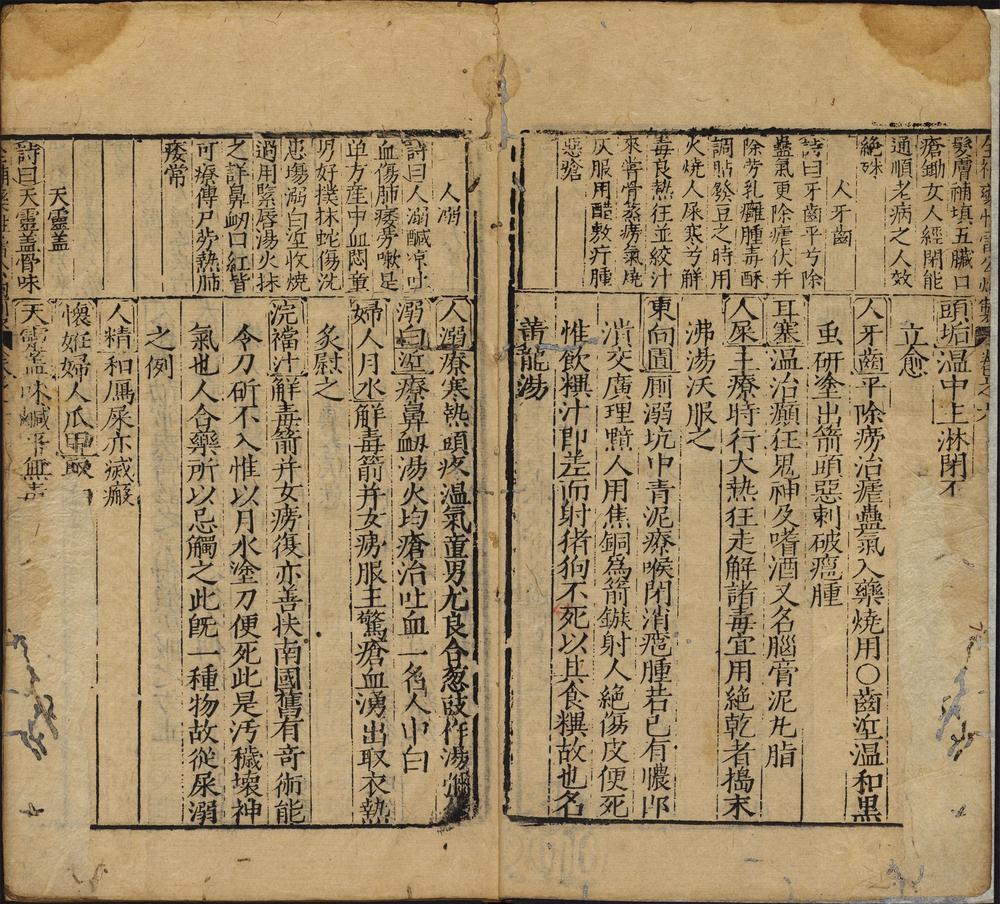 髮膚補填五臟口
瘡鋤女人經閉能
通順老病之人效
絶殊
人牙齒
詩曰牙齒平兮除
蠱氣更除瘧伏并
除芳乳癰腫毒酥
調貼發豆之時用
火燒人屎寒兮解
毒良熱狂並絞汁
來嘗骨蒸癆氣燒
灰服用醋敷疔腫
惡瘡
頭垢温中主淋閉不
立愈
人牙齒平除癆治瘧蠱氣入藥燒用〇齒垽温和黒
虱研塗出箭頭惡刺破癰腫
耳塞温治顛狂鬼神及嗜酒又名腦膏泥丸脂
人屎主療時行大熱狂走解諸毒宜用絶乾者搗末
沸湯沃服之
東向圊厠溺坑中青泥療喉閉消癰腫若已有膿即
潰交廣理黯人用焦銅爲箭鏃射人絶傷皮便死
惟飲糞汁即差而射猪狗不死以其食糞故也名
黄龍湯
人溺
詩曰人溺鹹凉吐
血傷肺痿勞嗽是
單方産中血悶童
男好撲抹蛇傷洗
患瘍溺白垽收燒
過用緊唇湯火抹
之詳鼻衂口紅皆
可療傳尸勞熱肺
痿常
天靈蓋
詩曰天靈蓋骨味
人溺療寒熱頭疼温氣童男尤良合葱豉作湯
溺白垽療鼻衂湯火灼瘡治吐血一名人中白
婦人月水解毒箭并女癆服主驚瘡血湧出取衣熱
炙慰之
浣襠汁解毒箭并女癆復亦善扶南國舊有奇術能
令刀斫不入惟以月水塗刀便死此是汚穢壞神
氣也人合藥所以忌觸之此旣一種物故從屎溺
之例
人精和鷹屎亦滅瘢
懷姙婦人爪甲
天靈蓋味鹹平無毒